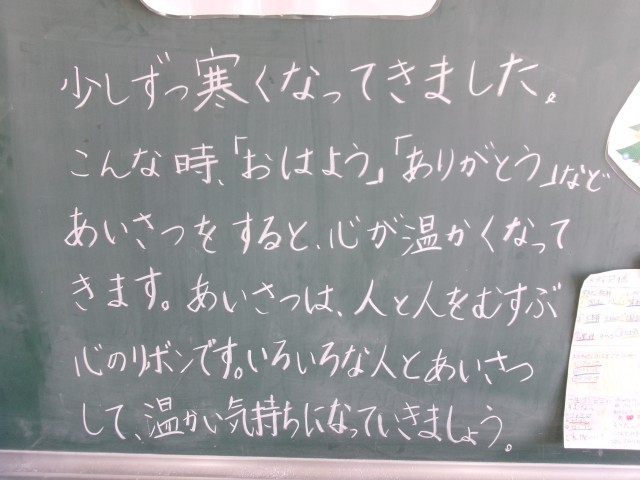 少しずつ寒くなってきました。
こんな時、「おはよう」「ありがとう」など
あいさつをすると、心が温かくなって
きます。あいさつは、人と人をむすぶ
心のリボンです。いろいろな人とあいさつ
して、温かい気持ちになっていきましょう。